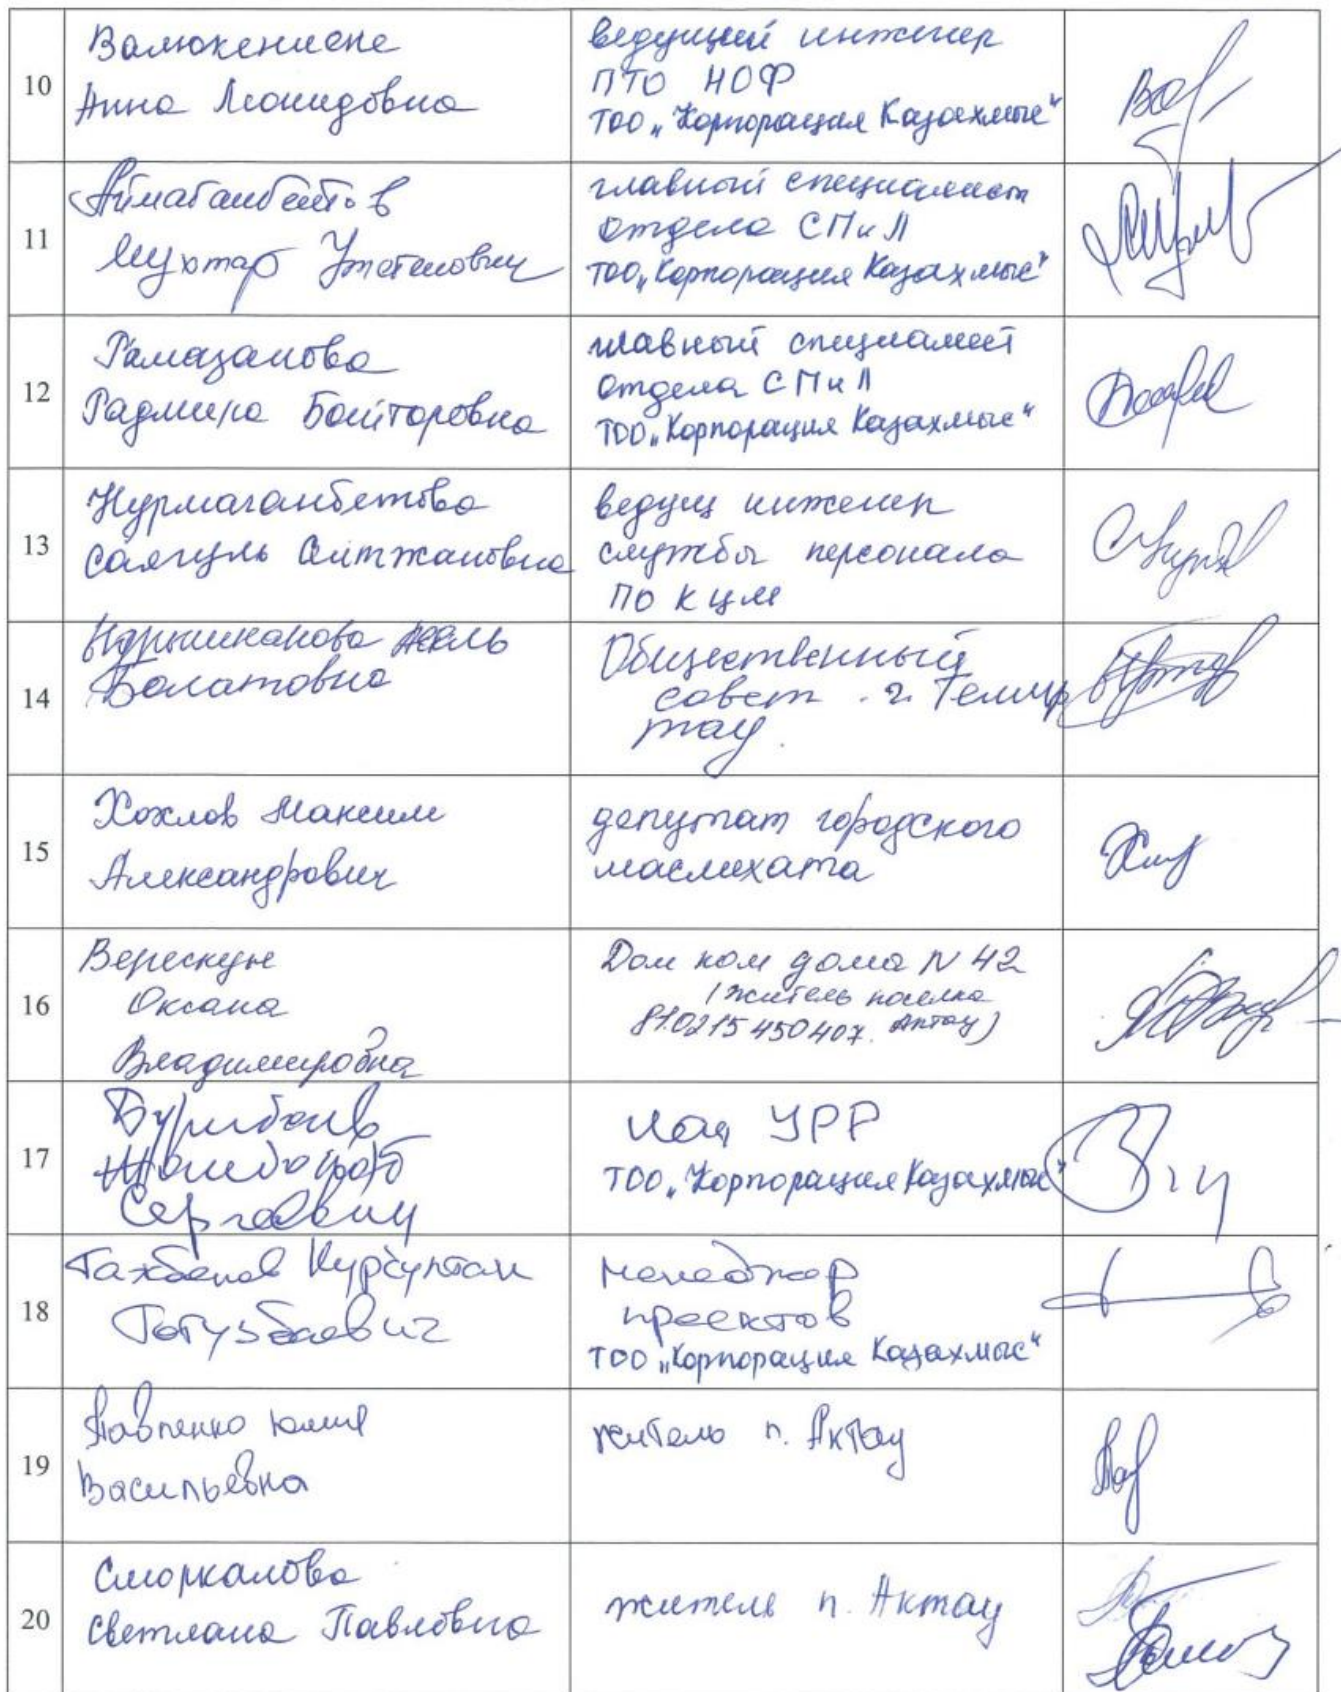 10
Валюкенене
Анна Леонидовна
ведущий инженер
ПТО НОФ
ТОО „Корпорация Казахмыс“
11
Аймаганбетов
Мухтар Утегенович
главный специалист
отдела СПиЛ
ТОО „Корпорация Казахмыс“
12
Рамазанова
Радмила Бахторовна
главный специалист
отдела СПиЛ
ТОО „Корпорация Казахмыс“
13
Нурмаганбетова
Саягуль Айтжановна
ведущ инженер
службы персонала
ПО КЦМ
14
Нарышканова Асель
Болатовна
Общественный
совет г. Темир
тау.
15
Хохлов Максим
Александрович
депутат городского
маслихата
16
Верескун
Оксана
Владимировна
Дом ком дома N 42
(житель поселка
810215450407. Актау)
17
Сергеевич
УРР
ТОО „Корпорация Казахмыс“
18
Нурсултан
менеджер
проектов
ТОО „Корпорация Казахмыс“
19
Павленко Юлия
Васильевна
житель п. Актау
20
Сморкалова
Светлана Павловна
житель п. Актау